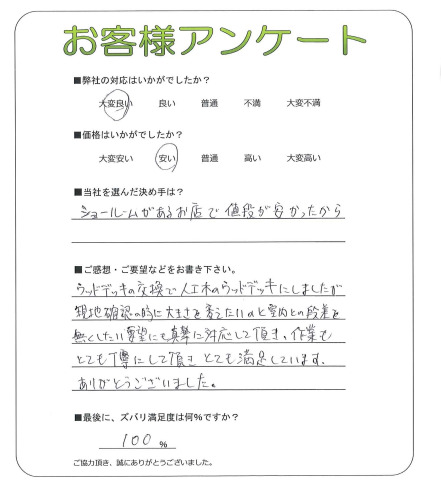 お客様アンケート
■弊社の対応はいかがでしたか？
大変良い 良い 普通 不満 大変不満
■価格はいかがでしたか？
大変安い 安い 普通 高い 大変高い
■当社を選んだ決め手は？
ショールームがあるお店で値段が安かったから
■ご感想・ご要望などをお書き下さい。
ウッドデッキの交換で人工木のウッドデッキにしましたが
現地確認の時に大きさを変えたいのと室内との段差を
無くしたい要望にも真摯に対応して頂き、作業も
とても丁寧にして頂きとても満足しています。
ありがとうございました。
■最後に、ズバリ満足度は何%ですか？
100 %
ご協力頂き、誠にありがとうございました。